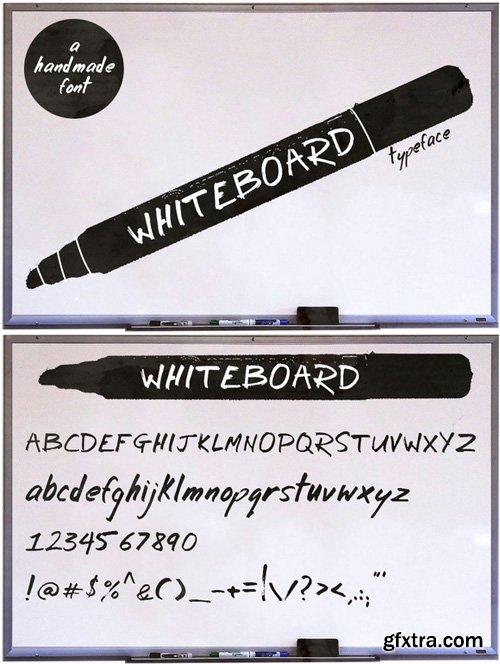 a
handmade
font
WHITEBOARD
typeface
WHITEBOARD
ABCDEFGHIJKLMNOPQRSTUVWXYZ
abcdefghijklmnopqrstuvwxyz
1234567890
!@#$%^&()_-+=|\/?><,.:;'"
gfxtra.com